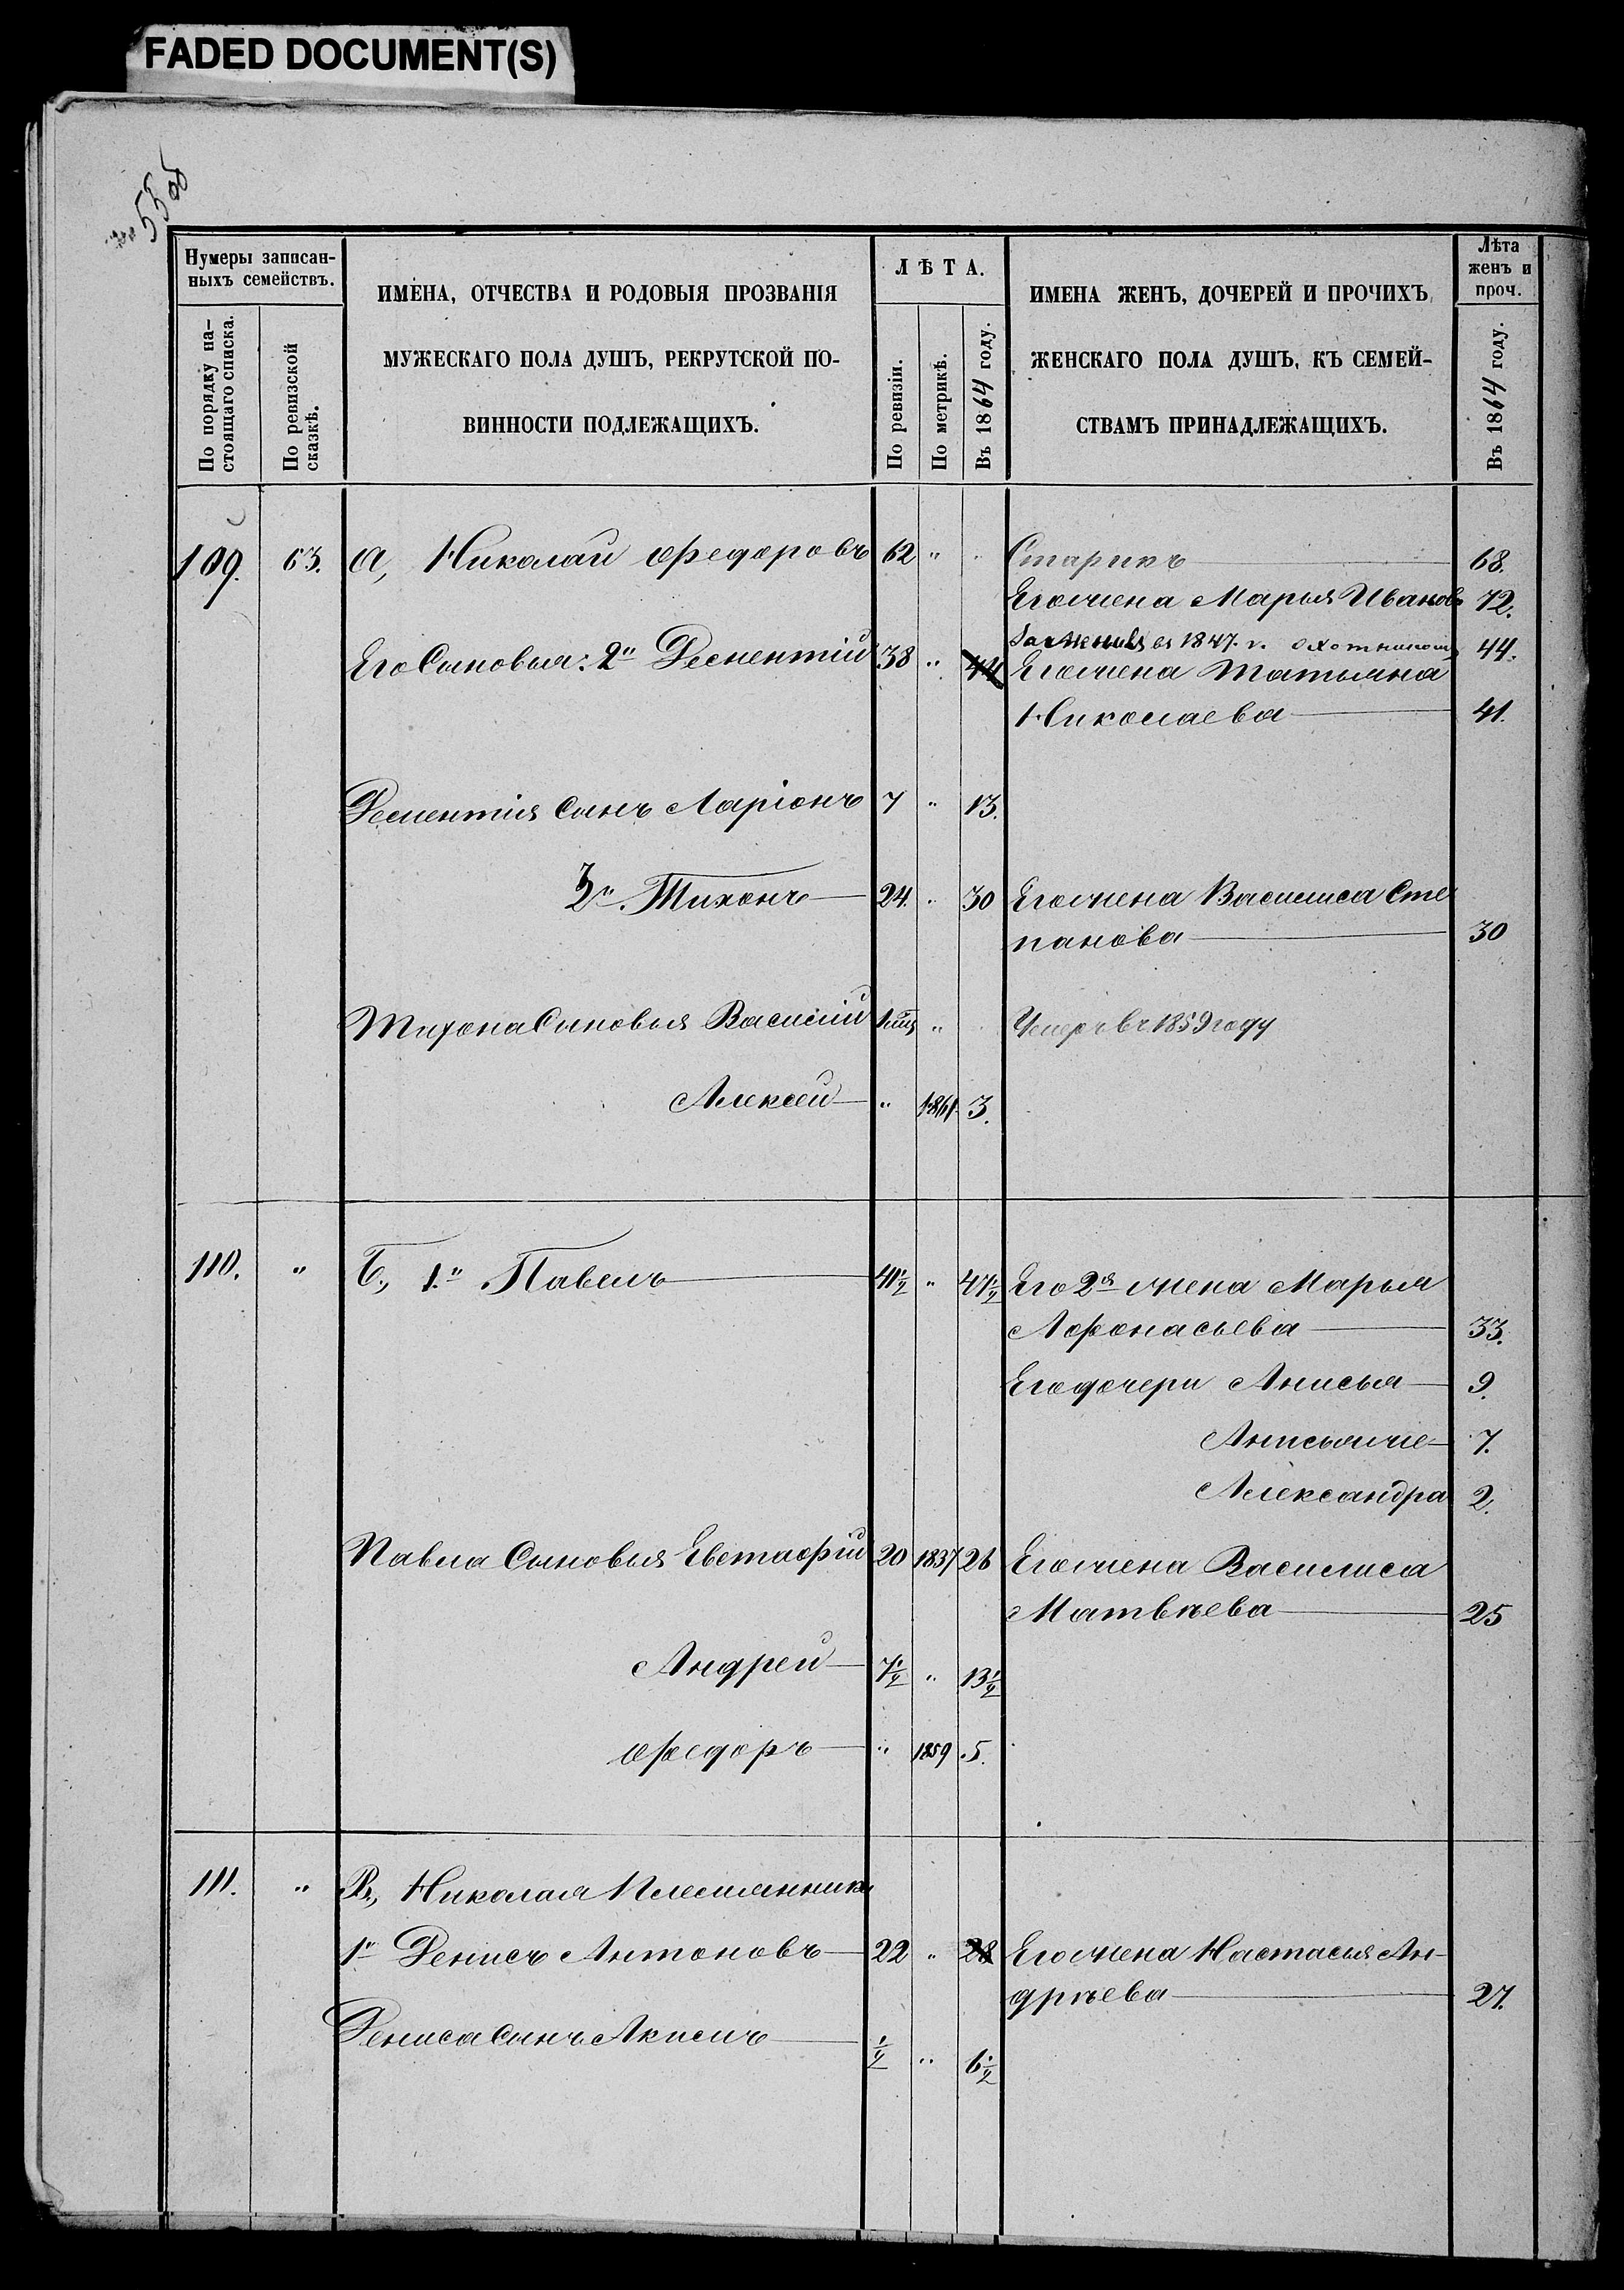 FADED DOCUMENT(S)
55об
Нумеры записан-
ныхъ семействъ.
По порядку на-
стоящаго списка.
По ревизской
сказкѣ.
ИМЕНА, ОТЧЕСТВА И РОДОВЫЯ ПРОЗВАНІЯ
МУЖЕСКАГО ПОЛА ДУШЪ, РЕКРУТСКОЙ ПО-
ВИННОСТИ ПОДЛЕЖАЩИХЪ.
ЛѢТА.
По ревизіи.
По метрикѣ.
Въ 1864 году.
ИМЕНА ЖЕНЪ, ДОЧЕРЕЙ И ПРОЧИХЪ
ЖЕНСКАГО ПОЛА ДУШЪ, КЪ СЕМЕЙ-
СТВАМЪ ПРИНАДЛЕЖАЩИХЪ.
Лѣта
женъ и
проч.
Въ 1864 году.
109. 63. а, Николай Федоровъ 62 " " Старикъ 68.
Его жена Марья Иванов 72.
въ 1847. г. охотникомъ 44.
Его Сыновья: 2й Дементій 38 " 44 Его жена Татьяна
Николаева 41.
Дементія Сынъ Ларіонъ 7 " 13.
Тихонъ 24. " 30 Его жена Василиса Сте
панова 30
Тихона Сыновья Василій " Умеръ въ 1859 году
Алексей " 1861 3.
110. " Б, 1й Павелъ 41½ " 47½ Его 2я жена Марья
Афонасьева 33.
Его дочери Анисья 9.
7.
Александра 2.
Павла Сыновья Евстафій 20 1837 26 Его жена Василиса
Матвѣева 25
Андрей 7½ " 13½
Федоръ " 1859 5.
111. " В, Николая Племянники
1й Денисъ Антоновъ 22 " 28 Его жена Настасья Ан-
дрѣева 27.
Дениса Сынъ Акимъ ½ " 6½